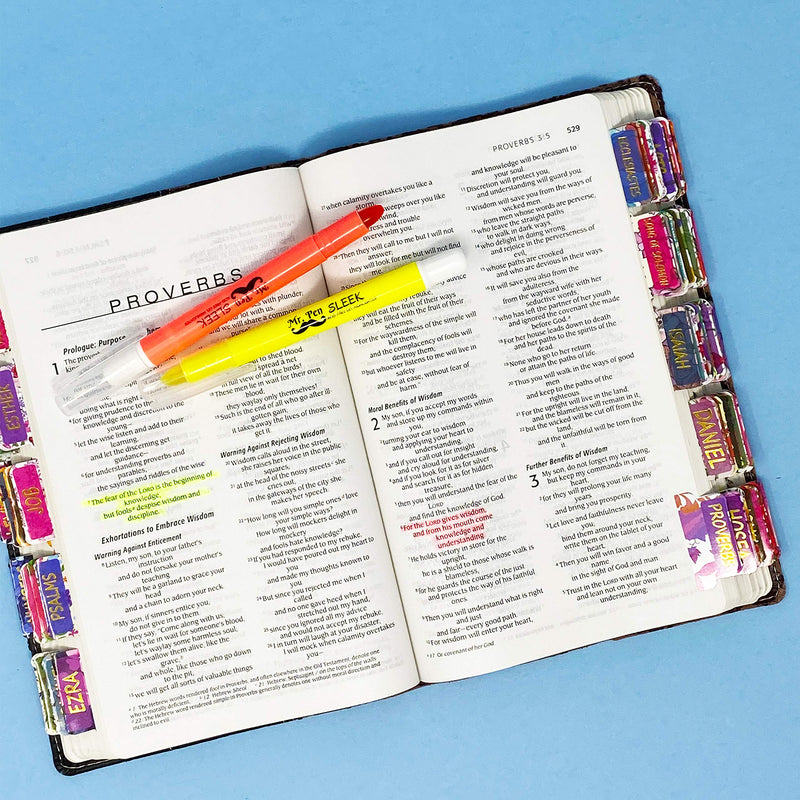 PROVERBS
Prologue: Purpose
1 The proverbs
doing what is right
for giving prudence to
knowledge and discretion to the
young—
let the wise listen and add to their
learning,
and let the discerning get
guidance—
for understanding proverbs and
parables,
the sayings and riddles of the wise
The fear of the LORD is the beginning of
knowledge,
but fools despise wisdom and
discipline.
Exhortations to Embrace Wisdom
Warning Against Enticement
Listen, my son, to your father's
instruction
and do not forsake your mother's
teaching.
They will be a garland to grace your
head
and a chain to adorn your neck.
My son, if sinners entice you,
do not give in to them.
If they say, "Come along with us;
let's lie in wait for someone's blood,
let's waylay some harmless soul;
let's swallow them alive, like the
grave,
and whole, like those who go down
to the pit;
we will get all sorts of valuable things
with plunder;
lot with us,
and we will share a common
to shed blood.
spread a net
full view of all the birds!
These men lie in wait for their own
blood;
they waylay only themselves!
Such is the end of all who go after ill-
gotten gain;
it takes away the lives of those who
get it.
Warning Against Rejecting Wisdom
Wisdom calls aloud in the street,
she raises her voice in the public
squares;
at the head of the noisy streets she
cries out,
in the gateways of the city she
makes her speech:
"How long will you simple ones love
your simple ways?
How long will mockers delight in
mockery
and fools hate knowledge?
If you had responded to my rebuke,
I would have poured out my heart to
you
and made my thoughts known to
you.
But since you rejected me when I
called
and no one gave heed when I
stretched out my hand,
since you ignored all my advice
and would not accept my rebuke,
I in turn will laugh at your disaster;
I will mock when calamity overtakes
you—
1 The Hebrew words rendered fool in Proverbs, and often elsewhere in the Old Testament, denote one
who is morally deficient. 12 Hebrew Sheol 21 Hebrew; Septuagint / on the tops of the walls
22 The Hebrew word rendered simple in Proverbs generally denotes one without moral direction and
inclined to evil.
PROVERBS 3:5 529
when calamity overtakes you like a
storm,
sweeps over you like
distress and trouble
overwhelm you.
Then they will call to me but I will not
answer;
they will look for me but will not find
they will eat the fruit of their ways
and be filled with the fruit of their
schemes.
For the waywardness of the simple will
kill them,
and the complacency of fools will
destroy them;
but whoever listens to me will live in
safety
and be at ease, without fear of
harm."
Moral Benefits of Wisdom
2 My son, if you accept my words
and store up my commands within
you,
turning your ear to wisdom
and applying your heart to
understanding,
and if you call out for insight
and cry aloud for understanding,
and if you look for it as for silver
and search for it as for hidden
treasure,
then you will understand the fear of the
LORD
and find the knowledge of God.
For the LORD gives wisdom,
and from his mouth come
knowledge and
understanding.
He holds victory in store for the
upright,
he is a shield to those whose walk is
blameless,
for he guards the course of the just
and protects the way of his faithful
ones.
Then you will understand what is right
and just
and fair—every good path.
For wisdom will enter your heart,
and knowledge will be pleasant to
your soul.
Discretion will protect you,
and understanding will guard you.
Wisdom will save you from the ways of
wicked men,
from men whose words are perverse,
who leave the straight paths
to walk in dark ways,
who delight in doing wrong
and rejoice in the perverseness of
evil,
whose paths are crooked
and who are devious in their ways.
It will save you also from the
adulteress,
from the wayward wife with her
seductive words,
who has left the partner of her youth
and ignored the covenant she made
before God.
For her house leads down to death
and her paths to the spirits of the
dead.
None who go to her return
or attain the paths of life.
Thus you will walk in the ways of good
men
and keep to the paths of the
righteous.
For the upright will live in the land,
and the blameless will remain in it;
but the wicked will be cut off from the
land,
and the unfaithful will be torn from
it.
Further Benefits of Wisdom
3 My son, do not forget my teaching,
but keep my commands in your
heart,
for they will prolong your life many
years
and bring you prosperity.
Let love and faithfulness never leave
you;
bind them around your neck,
write them on the tablet of your
heart.
Then you will win favor and a good
name
in the sight of God and man.
Trust in the LORD with all your heart
and lean not on your own
understanding;
17 Or covenant of her God
Mr. Pen SLEEK
Mr. Pen SLEEK
ESTHER
JOB
PSALMS
EZRA
ECCLESIASTES
SONG OF SOLOMON
ISAIAH
DANIEL
HOSEA
PROVERBS